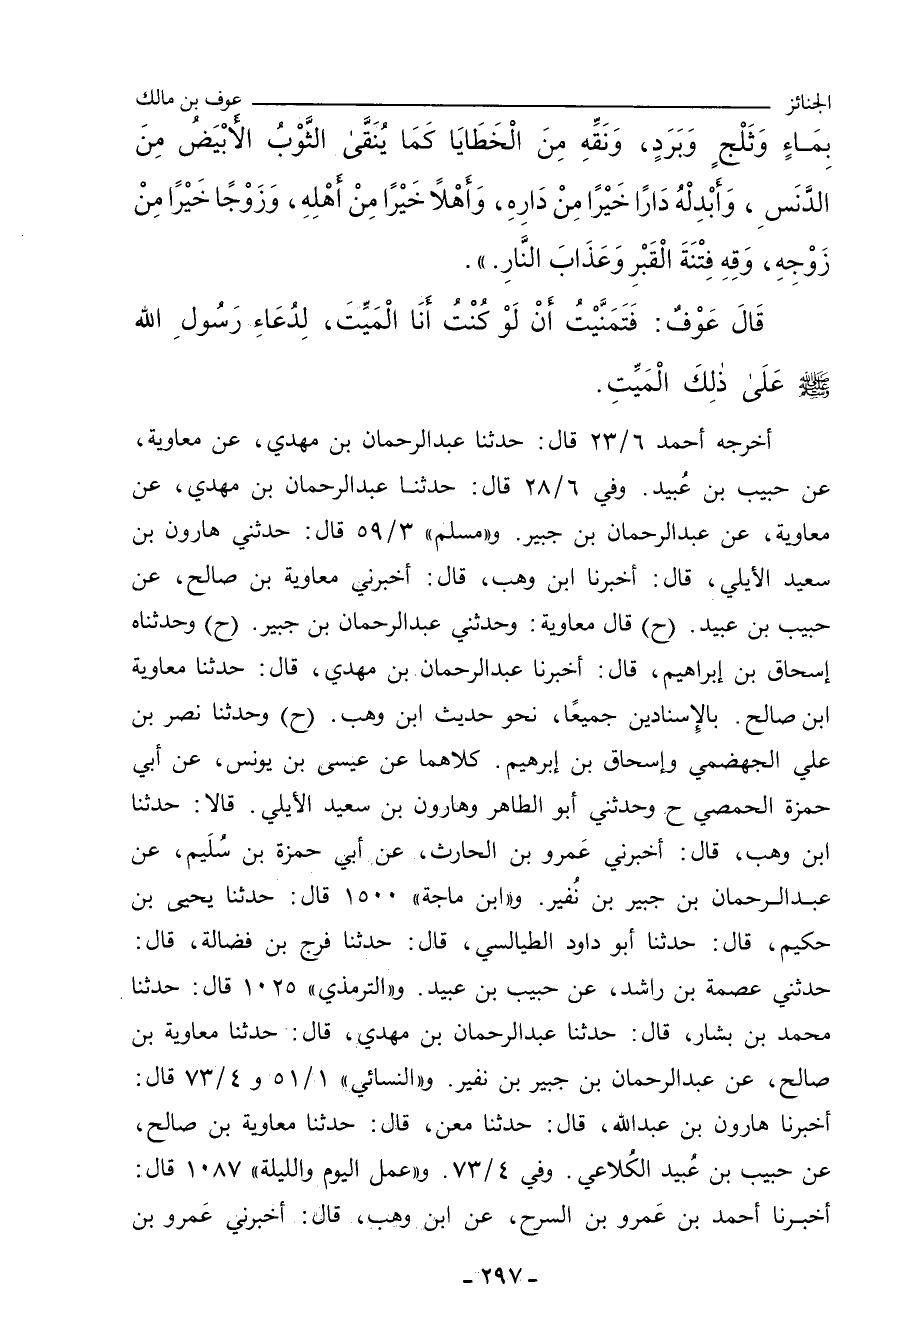 الجنائز ــــــــــــــــــــ عوف بن مالك
بِمَاءٍ وَثَلْجٍ وَبَرَدٍ، وَنَقِّهِ مِنَ الْخَطَايَا كَمَا يُنَقَّىٰ الثَّوْبُ الأَبْيَضُ مِنَ
الدَّنَسِ ، وَأَبْدِلْهُ دَارًا خَيْرًا مِنْ دَارِهِ، وَأَهْلاً خَيْرًا مِنْ أَهْلِهِ، وَزَوْجًا خَيْرًا مِنْ
زَوْجِهِ، وَقِهِ فِتْنَةَ الْقَبْرِ وَعَذَابَ النَّارِ. ».
قَالَ عَوْفٌ: فَتَمَنَّيْتُ أَنْ لَوْ كُنْتُ أَنَا الْمَيِّتَ، لِدُعَاءِ رَسُولِ الله
ﷺ عَلَىٰ ذٰلِكَ الْمَيِّتِ.
أخرجه أحمد ٢٣/٦ قال: حدثنا عبدالرحمان بن مهدي، عن معاوية،
عن حبيب بن عُبيد. وفي ٢٨/٦ قال: حدثنا عبدالرحمان بن مهدي، عن
معاوية، عن عبدالرحمان بن جبير. و«مسلم» ٥٩/٣ قال: حدثني هارون بن
سعيد الأيلي، قال: أخبرنا ابن وهب، قال: أخبرني معاوية بن صالح، عن
حبيب بن عبيد. (ح) قال معاوية: وحدثني عبدالرحمان بن جبير. (ح) وحدثناه
إسحاق بن إبراهيم، قال: أخبرنا عبدالرحمان بن مهدي، قال: حدثنا معاوية
ابن صالح. بالإسنادين جميعًا، نحو حديث ابن وهب. (ح) وحدثنا نصر بن
علي الجهضمي وإسحاق بن إبرهيم. كلاهما عن عيسى بن يونس، عن أبي
حمزة الحمصي ح وحدثني أبو الطاهر وهارون بن سعيد الأيلي. قالا: حدثنا
ابن وهب، قال: أخبرني عَمرو بن الحارث، عن أبي حمزة بن سُلَيم، عن
عبدالرحمان بن جبير بن نُفير. و«ابن ماجة» ١٥٠٠ قال: حدثنا يحيى بن
حكيم، قال: حدثنا أبو داود الطيالسي، قال: حدثنا فرج بن فضالة، قال:
حدثني عصمة بن راشد، عن حبيب بن عبيد. و«الترمذي» ١٠٢٥ قال: حدثنا
محمد بن بشار، قال: حدثنا عبدالرحمان بن مهدي، قال: حدثنا معاوية بن
صالح، عن عبدالرحمان بن جبير بن نفير. و«النسائي» ٥١/١ و ٧٣/٤ قال:
أخبرنا هارون بن عبدالله، قال: حدثنا معن، قال: حدثنا معاوية بن صالح،
عن حبيب بن عُبيد الكُلاعي. وفي ٧٣/٤. و«عمل اليوم والليلة» ١٠٨٧ قال:
أخبرنا أحمد بن عَمرو بن السرح، عن ابن وهب، قال: أخبرني عَمرو بن
- ٢٩٧ -